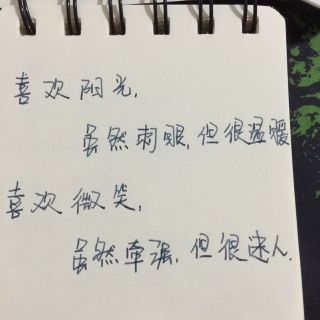 喜欢阳光,
虽然刺眼,但很温暖
喜欢微笑,
虽然牵强,但很迷人.